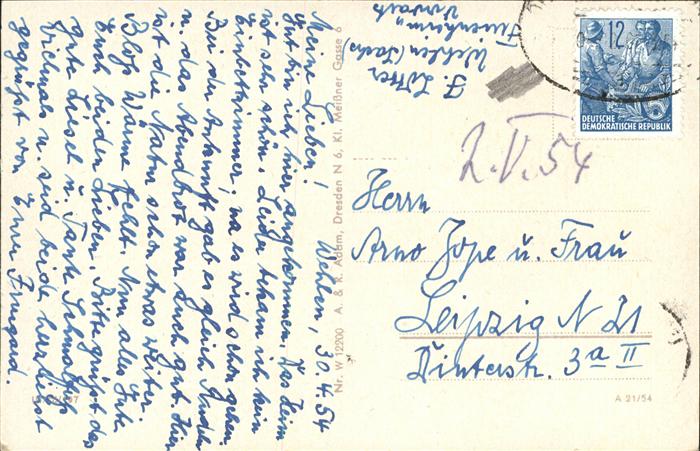 Wehlen, 30.4.54
Meine Lieben!
Gut bin ich hier angekommen. Das Heim
ist sehr schön. Leider bekam ich kein
Einbettzimmer, na es wird schon gehen.
Bei der Ankunft gab es gleich Nudeln
u. das Abendbrot war auch gut. Hier
ist die Natur schon etwas weiter.
Bloß Wärme fehlt. Nun alles Gute
Euch beiden Lieben. Bitte grüßt das
gute Liesel u. Tante
Vielmals u. seid beide herzlichst
gegrüßt von Eurer Irmgard.
Nr. W 12200 A. & R. Adam, Dresden N 6, Kl. Meißner Gasse 6
Wehlen (Sachs)
12
DEUTSCHE
DEMOKRATISCHE REPUBLIK
2.V.54
Herrn
Arno Jope u. Frau
Leipzig N 21
Dinterstr. 3a II
A 21/54